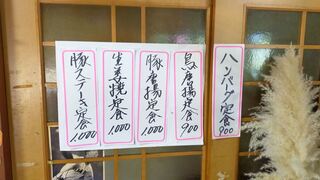 ハンバーグ定食 900
鳥唐揚定食 900
豚唐揚定食 1,000
生姜焼定食 1,000
豚ステーキ定食 1,000